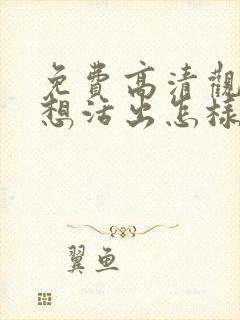 免費高清觀
想活出怎樣
翼魚